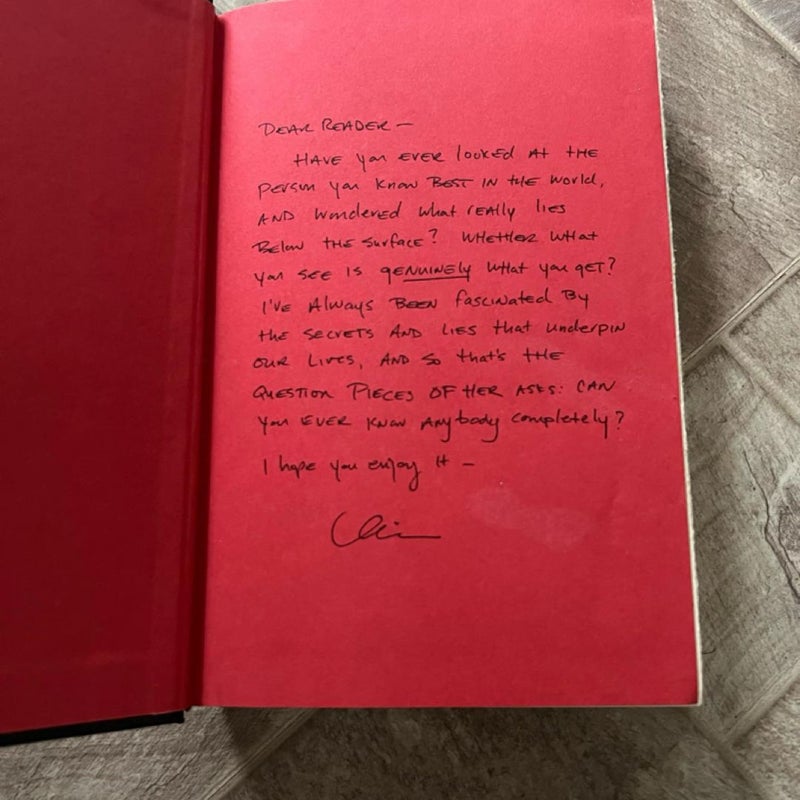 DEAR READER —
HAVE you EVER looked At tHE
person you know BEST IN tHE world,
AND wondered what rEAlly liEs
BElow tHE surface? WHETHER WHAt
you SEE IS gENUINEly what you gET?
I'VE Always BEEN fascinated By
the SECREtS AND LIES that underpin
OUR LIVES, AND So that's tHE
QUESTION PIECES OF HER ASKS: CAN
you EVER KNOW Anybody completely?
I hope you enjoy it —